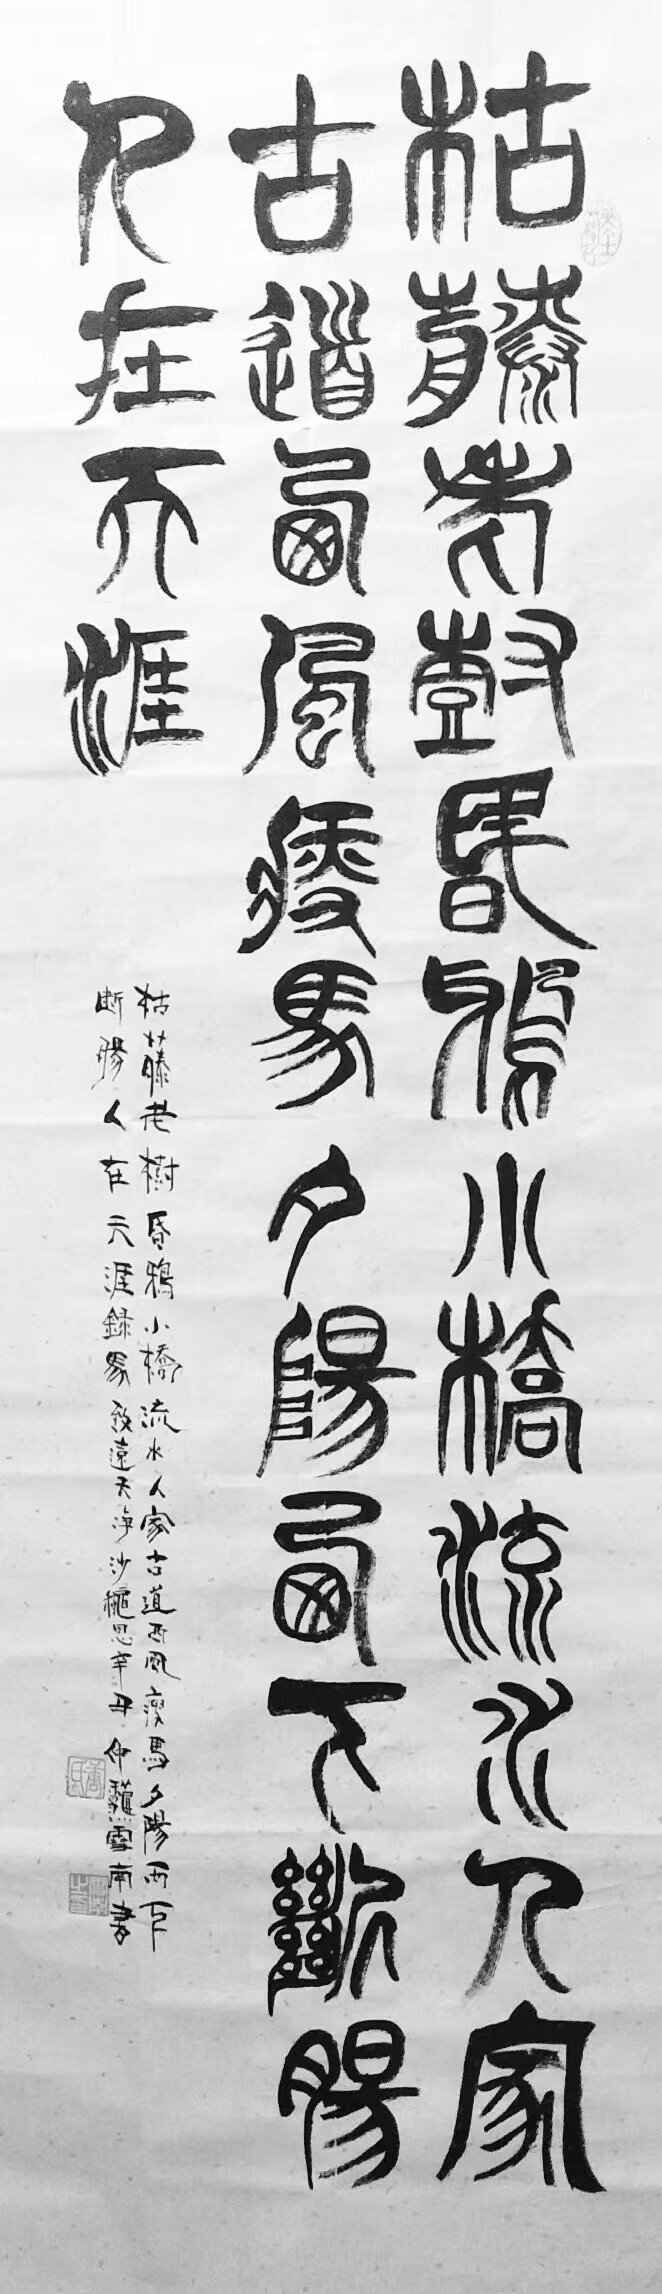 枯藤老樹昏鴉小橋流水人家
古道西風瘦馬夕陽西下斷腸
人在天涯
枯藤老樹昏鴉小橋流水人家古道西風瘦馬夕陽西下
断腸人在天涯錄馬致遠天淨沙穐思辛丑仲龝雪南書